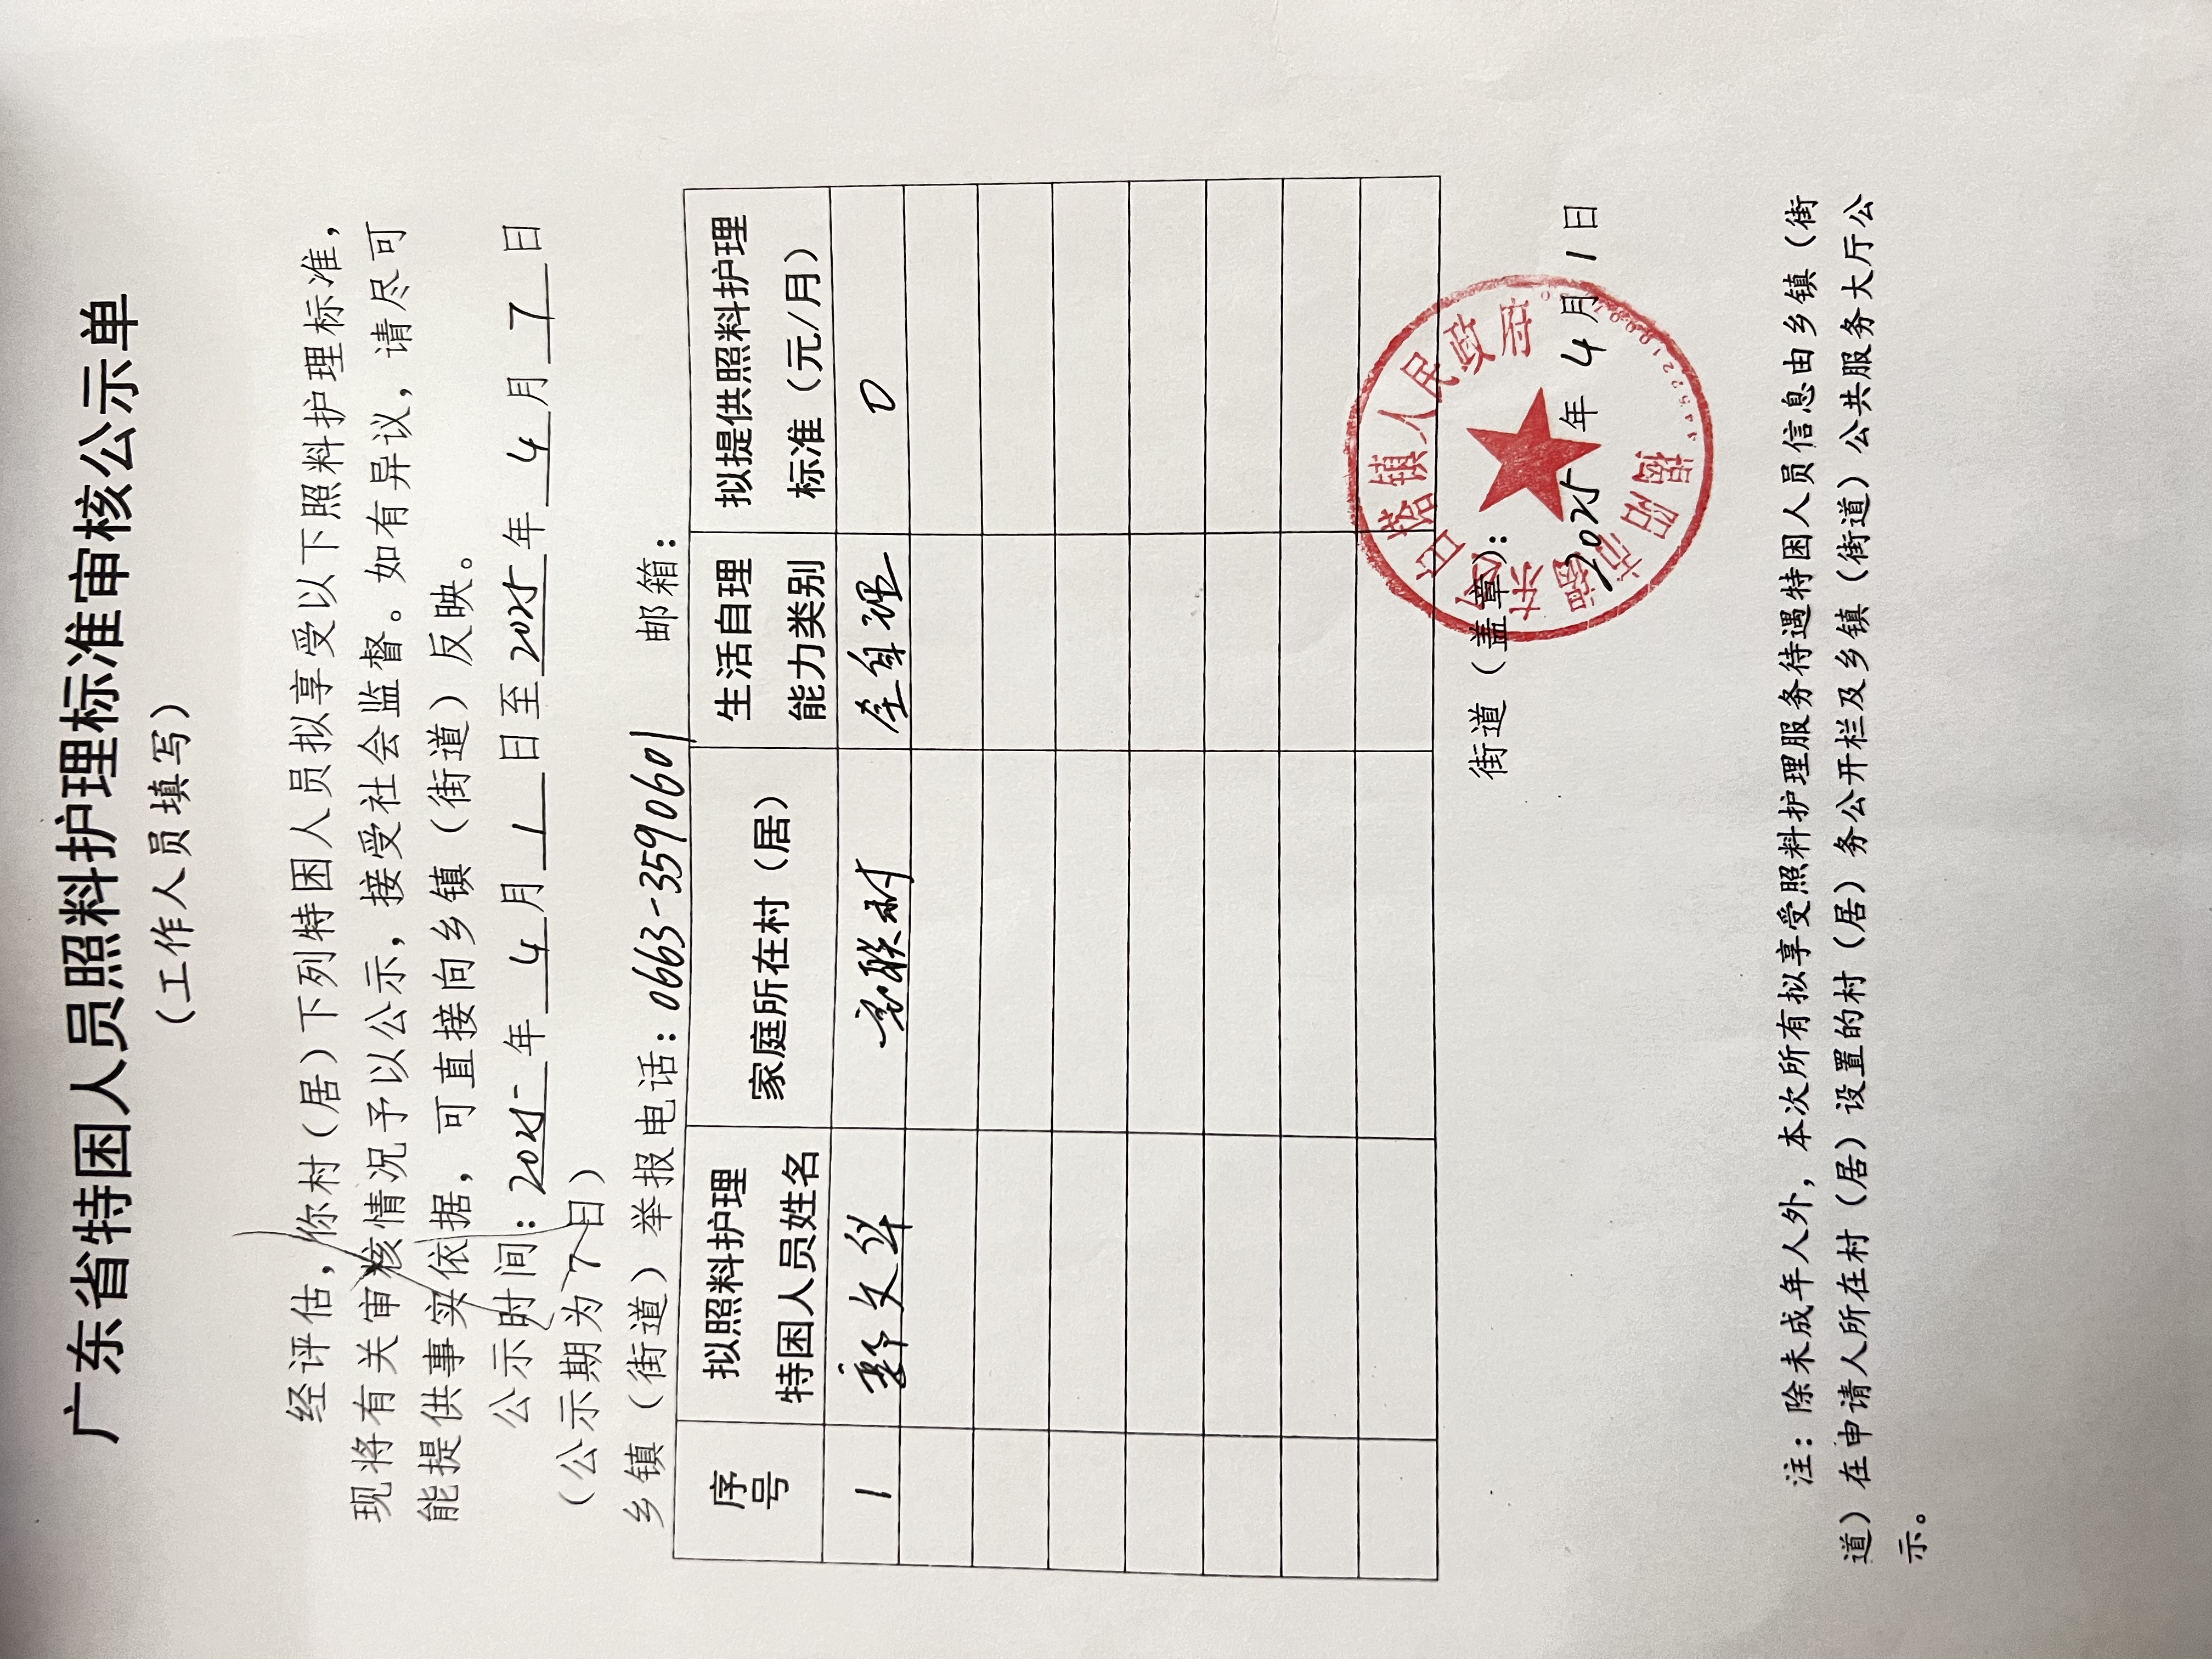 广东省特困人员照料护理标准审核公示单
（工作人员填写）
经评估，你村（居）下列特困人员拟享受以下照料护理标准，
现将有关审核情况予以公示，接受社会监督。如有异议，请尽可
能提供事实依据，可直接向乡镇（街道）反映。
公示时间：2025年4月1日至2025年4月7日
（公示期为7日）
乡镇（街道）举报电话：0663-3590601 邮箱：
序号 拟照料护理特困人员姓名 家庭所在村（居） 生活自理能力类别 拟提供照料护理标准（元/月）
1 文 联村 全自理 0
街道（盖章）：
2025年4月1日
揭阳市揭东区 塔镇人民政府
注：除未成年人外，本次所有拟享受照料护理服务待遇特困人员信息由乡镇（街
道）在申请人所在村（居）设置的村（居）务公开栏及乡镇（街道）公共服务大厅公
示。